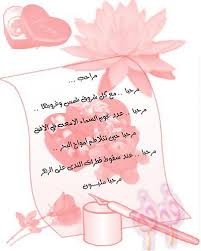 مراحب ...
مرحبا .. مع كل شروق شمس وغروبها ..
مرحبا .. عدد نجوم السماء اللامعه في الافق
مرحبا حين تتلاطم امواج البحر ..
مرحبا .. عند سقوط قطرات الندى على الزهر
مرحبا مليـــون